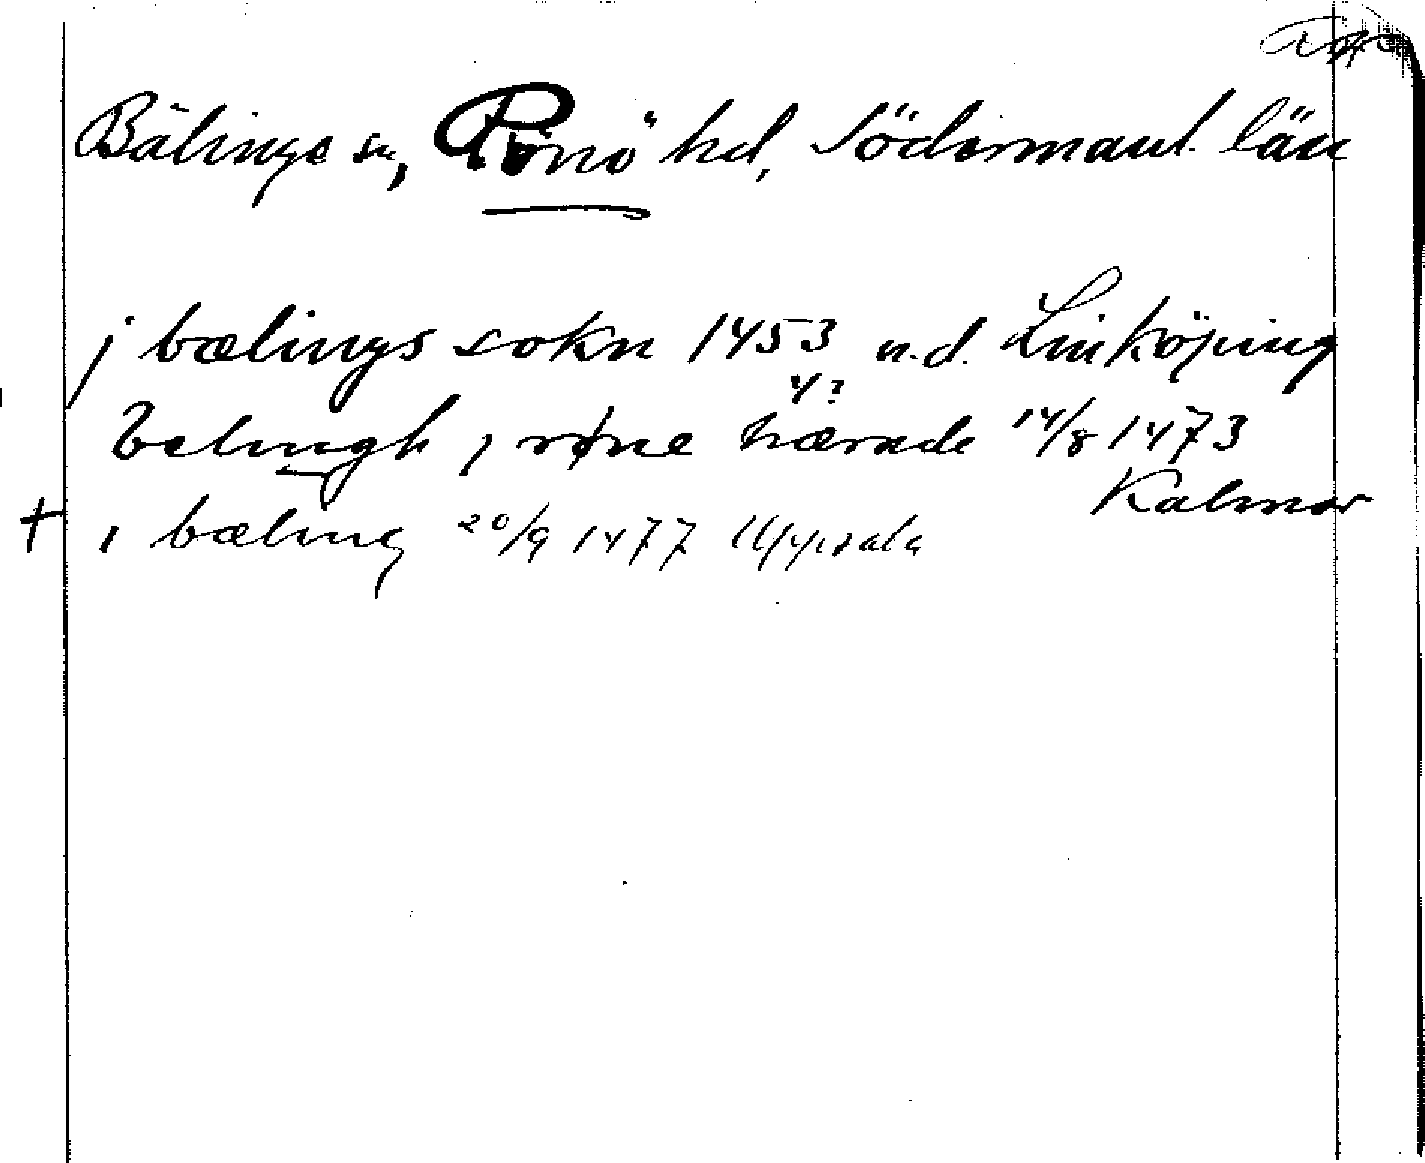 Bälinge sn, Rönö hd, Södermanl. län
j bælings sokn 1453 u.d. Linköping
4?
belingh j røne hærade 14/8 1473
Kalmar
+ i bæling 20/9 1477 Uppsala